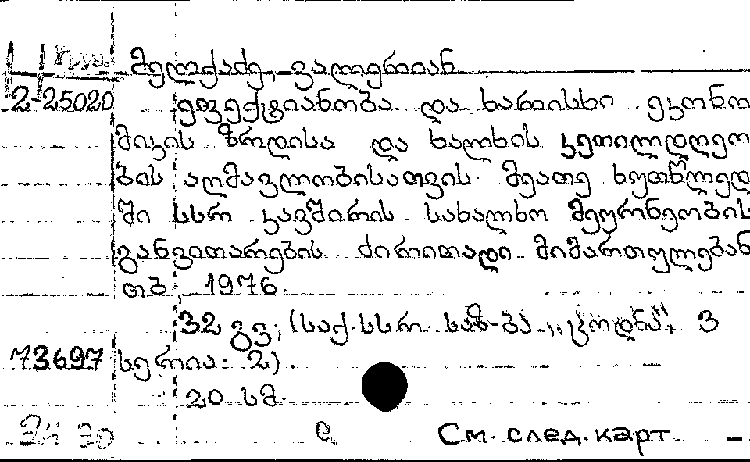 მელქაძე, ვალერიან
2-25020 ეფექტიანობა და ხარისხი ეკონო
მიკის ზრდისა და ხალხის კეთილდღეო
ბის აღმავლობისათვის. მეათე ხუთწლედ
ში სსრ კავშირის სახალხო მეურნეობის
განვითარების ძირითადი მიმართულებან
თბ 1976.
32 გვ; (საქ. სსრ საზ-ბა „ცოდნა", 3
73697 სერია: 2)
20 სმ.
См. след. карт.